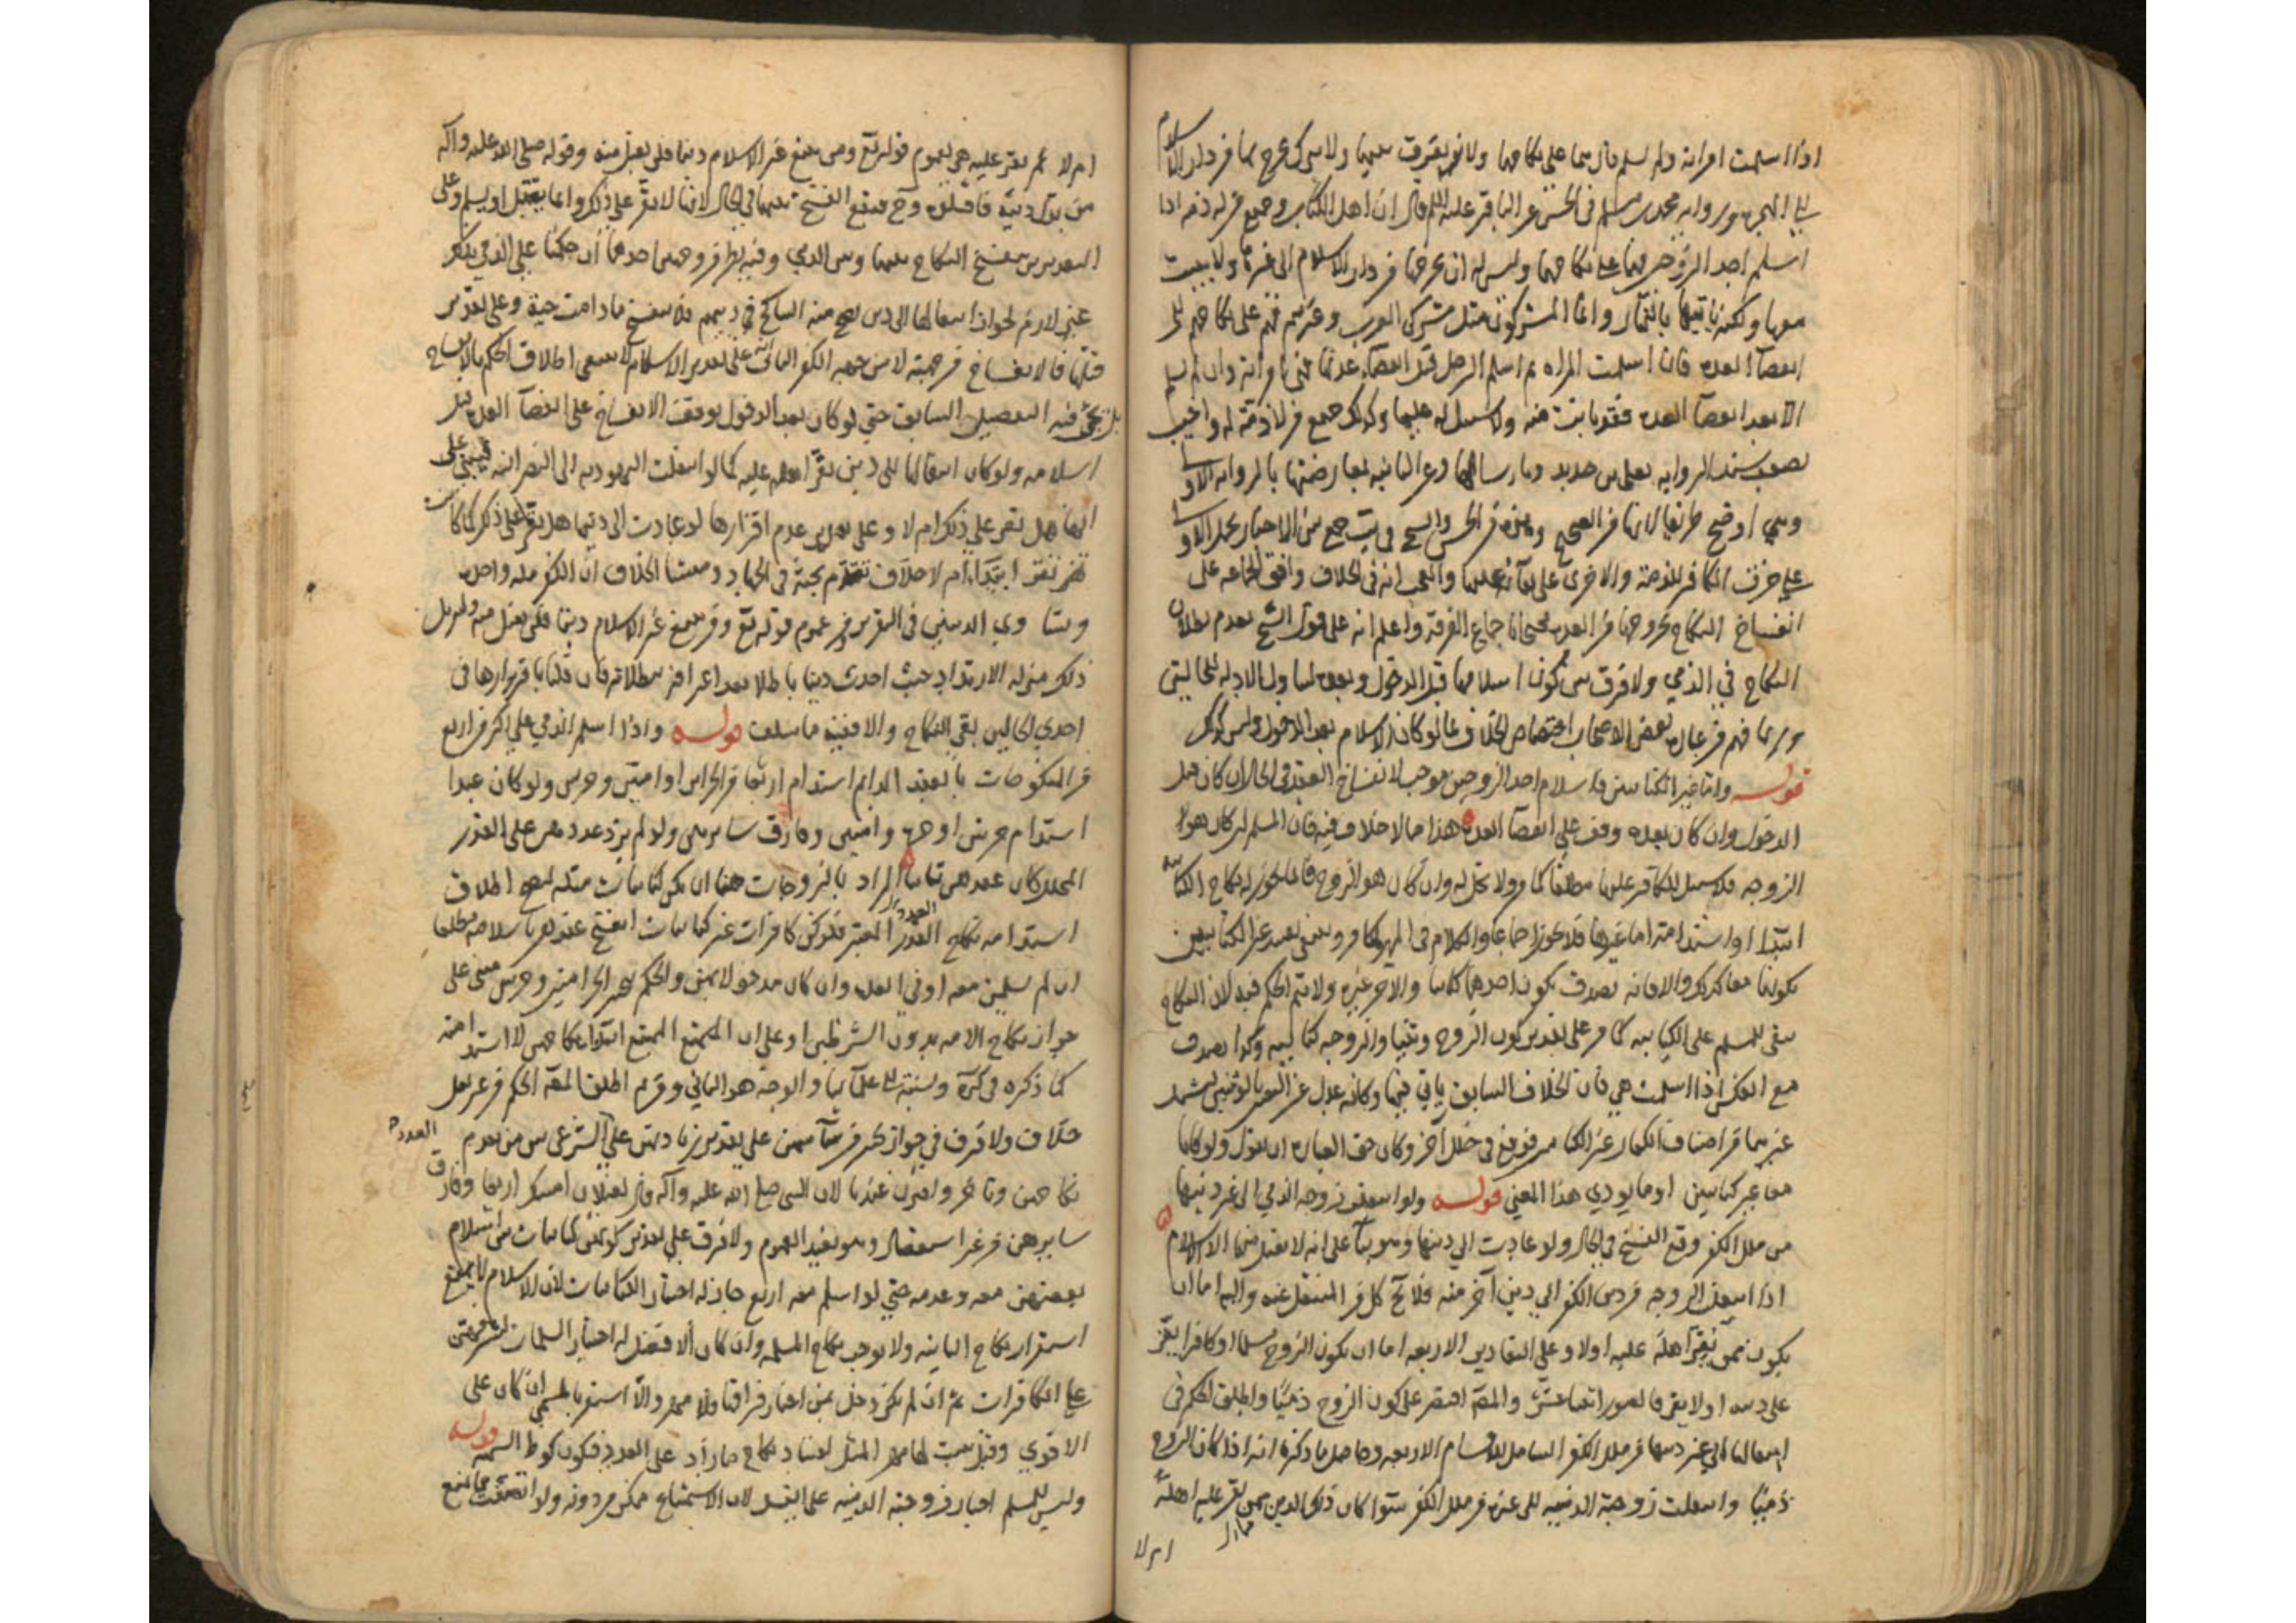 اذا اسلمت امراته ولم يسلم قال هما على نكاحهما ولا يفرق بينهما ولا يترك يخرج بها من دار الاسلام
الى الهجرة ورواية محمد بن مسلم في الحسن عن الباقر عليه السلم قال ان اهل الكتاب وجميع من له ذمة اذا
اسلم احد الزوجين فهما على نكاحهما وليس له ان يخرجها من دار الاسلام الى غيرها ولا يبيت
معها ولكنه ياتيها بالنهار واما المشركون مثل مشركي العرب وغيرهم فهم على نكاحهم الى
انقضآ العدة فان اسلمت المراة ثم اسلم الرجل قبل انقضآء عدتها فهي امراته وان لم يسلم
الا بعد انقضآ العدة فقد بانت منه ولا سبيل له عليها وكذلك جميع من لا ذمة له واجيب
بضعف سند الرواية بعلي بن حديد وبارسالها وعن الثانية بمعارضتها بالرواية الاولى
وهي اوضح طريقا لانها من الصحيح وهذه من الحسن والشيخ في كتب جمع بين الاخبار بحمل الاولى
على خرق الكافر للذمة والاخرى على بقآئه عليها والعجب انه في الخلاف وافق الجماعة على
انفساخ النكاح بخروجها من العدة محتجا باجماع الفرقة واعلم انه على قول الشيخ بعدم بطلان
النكاح في الذمي ولا فرق بين كون اسلامها قبل الدخول وبعده لتناول الادلة للحالتين
وربما فهم من عبارة بعض الاصحاب اختصاص الخلاف بما لو كان الاسلام بعد الدخول وليس كذلك
قوله واما غير الكتابيين فاسلام احد الزوجين موجب لانفساخ العقد في الحال ان كان قبل
الدخول وان كان بعده وقف على انقضآ العدة هذا مما لا خلاف فيه فان المسلم ان كان هو
الزوجة فلا سبيل للكافر عليها مطلقا كما مر ولا تحل له وان كان هو الزوج فانما يجوز له نكاح الكتابية
ابتدآ او استدامة اما غيرها فلا يجوز اجماعا والكلام في المهر كما مر ويعني بغير الكتابيين
كونهما معا كذلك والا فانه يصدق بكون احدهما كتابيا والاخر غيره ولا يتم الحكم فيه لان النكاح
يبقى للمسلم على الكتابية كما مر على تقدير كون الزوج وثنيا والزوجة كتابية وكذا يصدق
مع العكس اذا اسلمت هي فان الخلاف السابق ياتي فيها وكانه عدل عن التعبير بالوثنيين ليشمل
غيرهما من اصناف الكفار غير الكتابي فوقع في خلل آخر وكان حق العبارة ان يقول ولو كانا
معا غير كتابيين او ما يؤدي هذا المعنى قوله ولو انتقلت زوجة الذمي الى غير دينها
من ملل الكفر وقع الفسخ في الحال ولو عادت الى دينها وهو بنآ على انه لا يقبل منها الا الاسلام
اذا انتقلت الزوجة من دين الكفر الى دين آخر منه فلا يخ كل من المنتقل عنه واليه اما ان
يكون ممن يقر اهله عليه اولا وعلى التقادير الاربعة اما ان يكون الزوج مسلما او كافرا يقر
على دينه او لا يقر فالصور اثنتا عشرة والمصنف اقتصر على كون الزوج ذميا واطلق الحكم في
انتقالها الى غير دينها من ملل الكفر الشامل للاقسام الاربعة وحاصل ما ذكره انه اذا كان الزوج
ذميا وانتقلت زوجته الذمية الى غيره من ملل الكفر سوآ كان ذلك الدين ممن يقر عليه اهله
ام لا
ام لا لم تقر عليه هي لعموم قوله تع ومن يبتغ غير الاسلام دينا فلن يقبل منه وقوله صلى الله عليه وآله
من بدل دينه فاقتلوه وح فيقع الفسخ بينهما في الحال لانها لا تقر على ذلك وانما تقتل او يسلم وعلى
التقديرين ينفسخ النكاح بينها وبين الذمي وفيه نظر من وجهين احدهما ان حكمنا على الذمي بذلك
غير لازم لجواز انتقالها الى دين يصح فيه التناكح في دينهم فلا ينفسخ ما دامت حية وعلى تقدير
قتلها فالانفساخ من جهته لا من جهة الكفر الثاني على تقدير الاسلام لا ينبغي اطلاق الحكم بالانفساخ
بل يجئ فيه التفصيل السابق حتى لو كان بعد الدخول يوقف الانفساخ على انقضآ العدة قبل
اسلامه ولو كان انتقالها الى دين يقر اهله عليه كما لو انتقلت اليهودية الى النصرانية فيبنى على
انها هل تقر على ذلك ام لا وعلى تقدير عدم اقرارها لو عادت الى دينها هل تقر على ذلك كما كانت
تقر ابتدآ ام لا خلاف تقدم بحثه في الجهاد ومنشا الخلاف ان الكفر ملة واحدة
وتساوي الدينين في التقرير ومن عموم قوله تع ومن يبتغ غير الاسلام دينا فلن يقبل منه وتنزيل
ذلك منزلة الارتداد حيث احدث دينا باطلا بعد اعترافه ببطلانه فان قلنا باقرارها في
احدي الحالين بقي النكاح والا فيه ما سلف قوله واذا اسلم الذمي على اكثر من اربع
من المنكوحات بالعقد الدايم استدام اربعا من الحراير او امتين وحرتين ولو كان عبدا
استدام حرتين او حرة وامتين وفارق سايرهن ولو لم يزد عددهن على القدر
المحلل كان عقدهن ثابتا المراد بالزوجات هنا ان يكن كتابيات مثله ليصح اطلاق
استدامة نكاح العدد المعتبر فلو كن كافرات غير كتابيات انفسخ عقدهن باسلامه مطلقا
ان لم يسلمن معه او في العدة وان كان مدخولا بهن والحكم بتخير الحر امتين وحرتين مبني على
جواز نكاح الامة بدون الشرطين او على ان الممتنع ابتدآ نكاحهن لا استدامته
كما ذكره في كرة ونسبه الى علمآئنا والوجه هو الثاني ومن ثم اطلق المصنف الحكم من غير نقل
خلاف ولا فرق في جواز تخير من شآ منهن على تقدير زيادتهن على الشرعي بين من تقدم العدد
نكاحهن وتاخر واقترن عندنا لان النبي صلى الله عليه وآله قال لغيلان امسك اربعا وفارق
سايرهن من غير استفصال وهو يفيد العموم ولا فرق على تقدير كونهن كتابيات بين اسلام
بعضهن معه وعدمه حتى لو اسلم معه اربع جاز له اختيار الكتابيات لان الاسلام لا يمنع
استمرار نكاح الباقية ولا يوجب نكاح المسلمة وان كان الافضل له اختيار المسلمات لشرفهن
على الكافرات ثم ان لم يكن دخل بمن اختار فراقها فلا مهر والا استقر المسمى ان كان على
الاقوى وقيل يثبت لها مهر المثل لفساد نكاح ما زاد على العدد فيكون كوطئ الشبهة قوله
وليس للمسلم اجبار زوجته الذمية على الغسل لان الاستمتاع ممكن من دونه ولو اتصفت بما يمنع